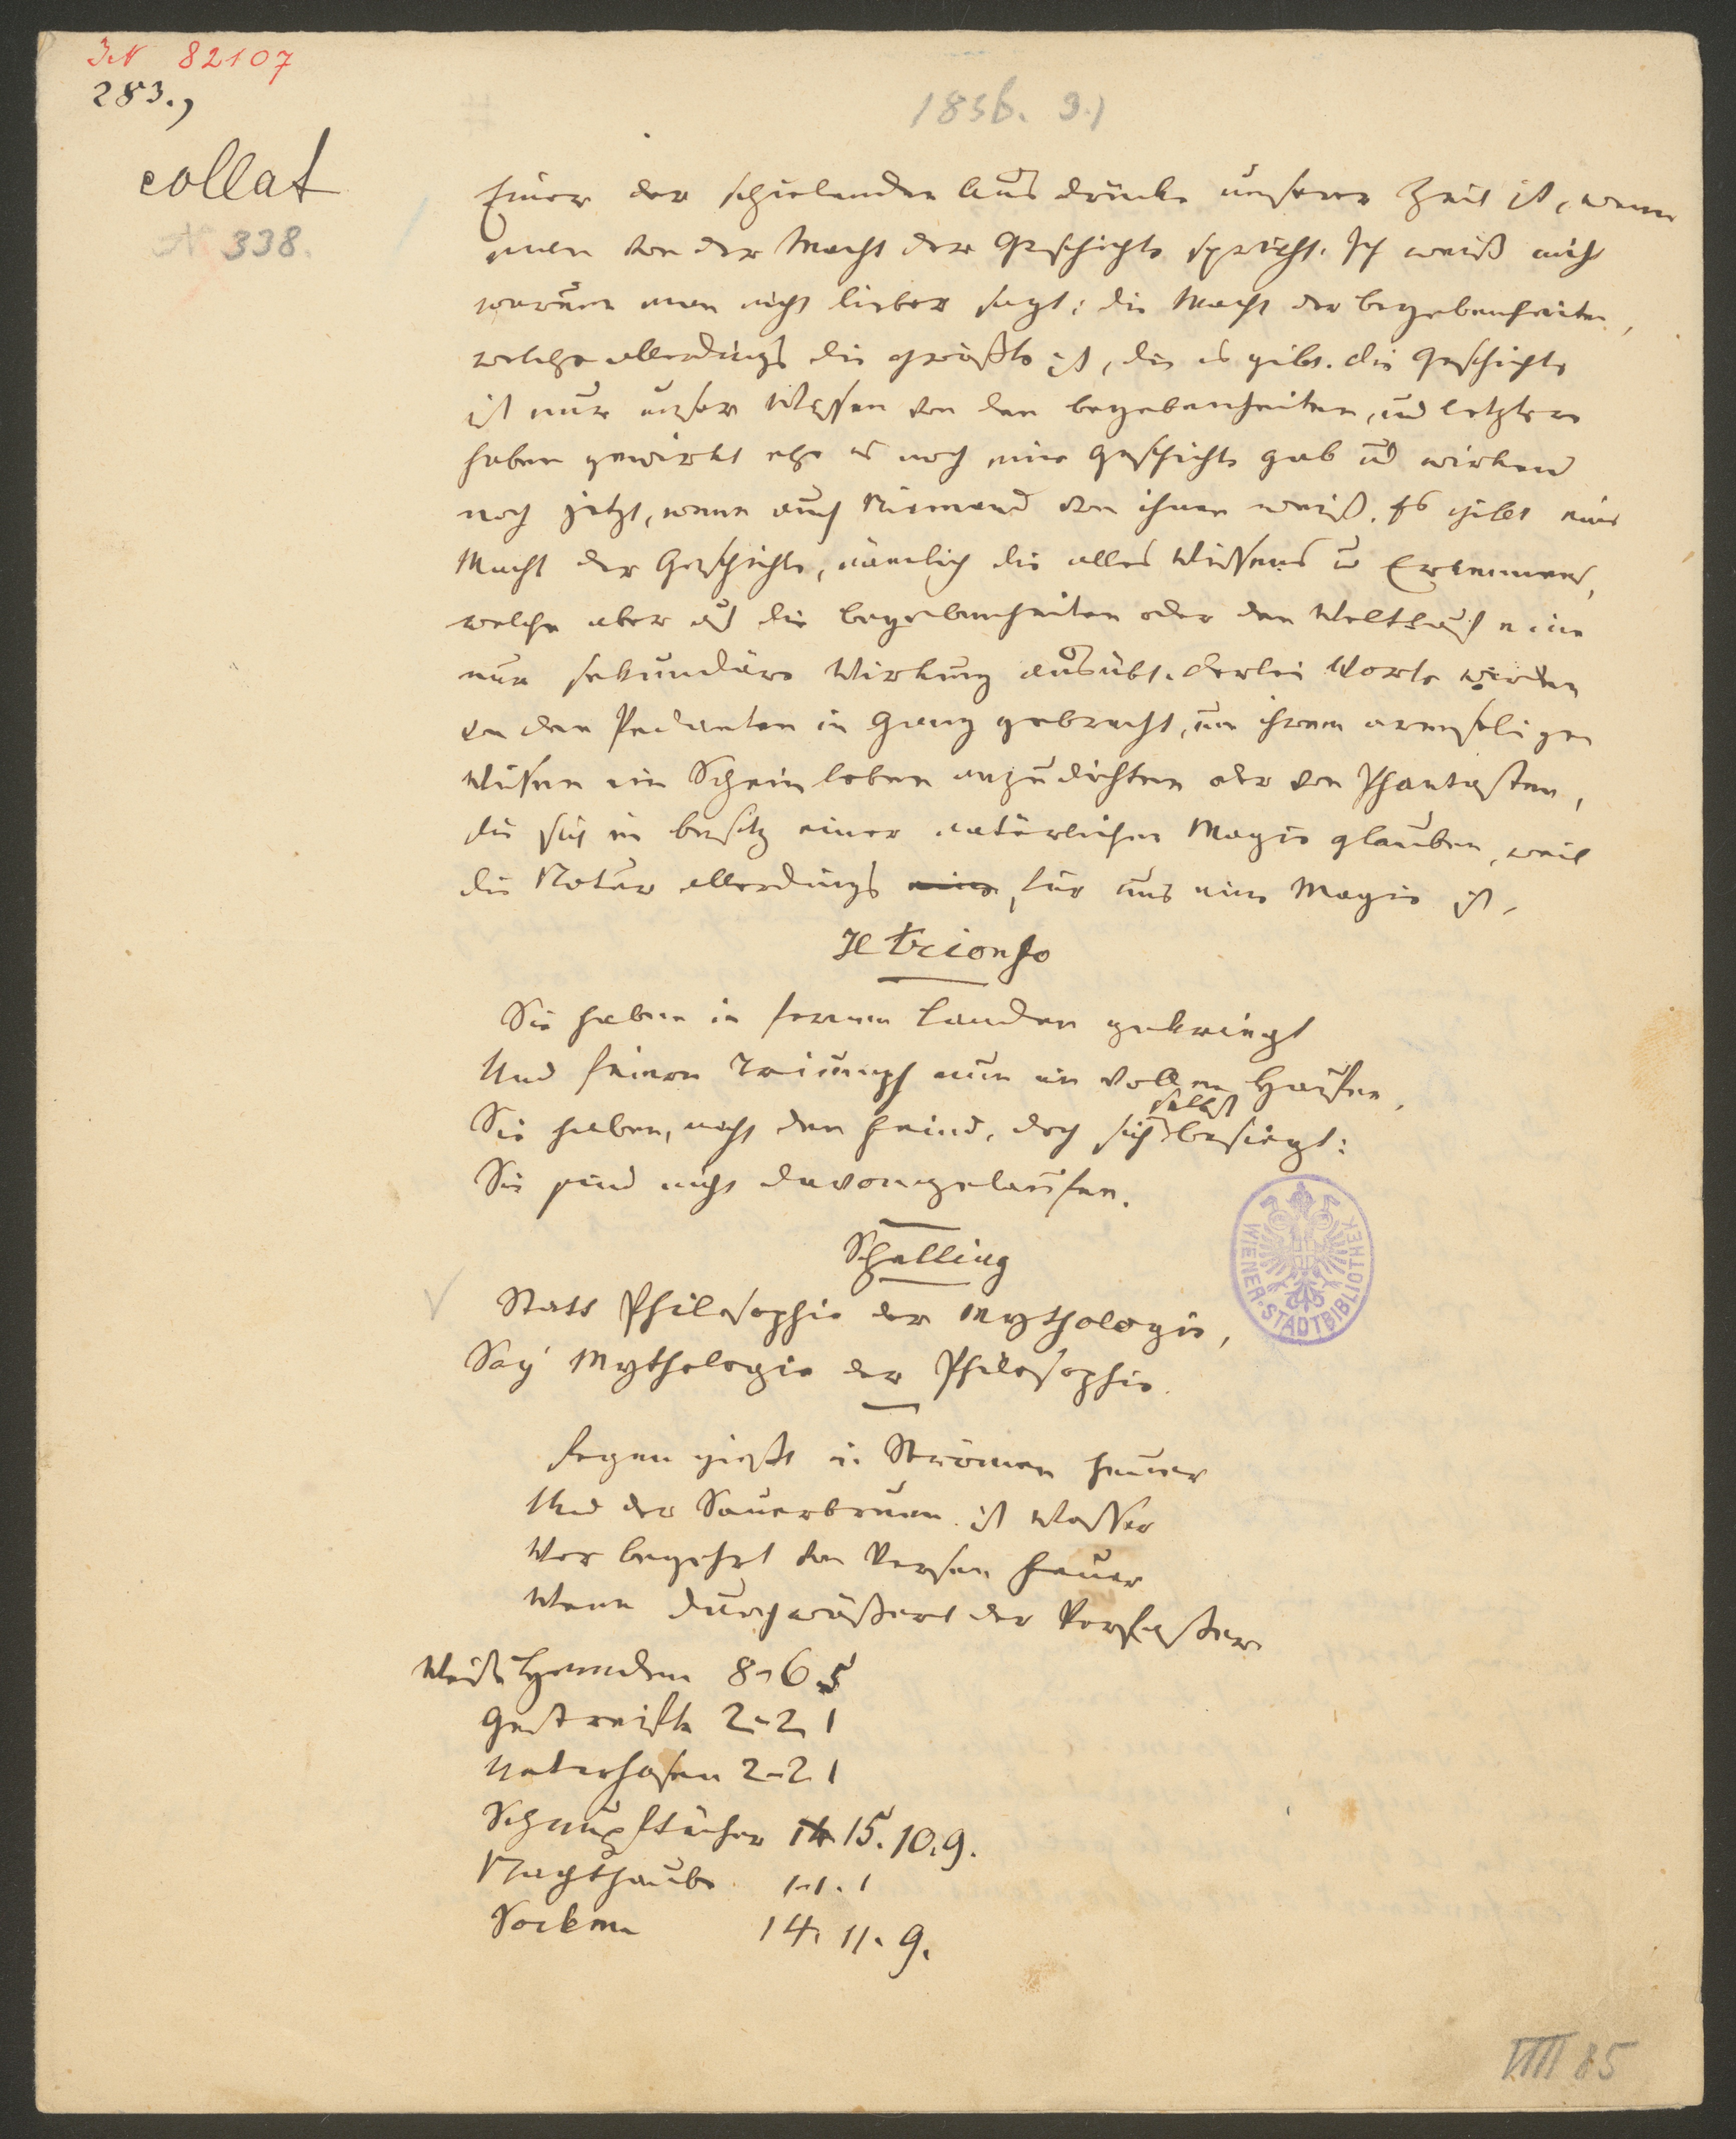 IN 82107
283.,
1856. 9.)
collat
N 338.
Einer der schielenden Ausdrücke unserer Zeit ist, wenn
man von der Macht der Geschichte spricht. Ich weiß nicht
warum man nicht lieber sagt: die Macht der Begebenheiten,
welche allerdings die größte ist, die es gibt. Die Geschichte
ist nur unser Wissen von den Begebenheiten, und letztere
haben gewirkt ehe es noch eine Geschichte gab und wirken
noch jetzt, wenn auch Niemand von ihnen weiß. Es gibt eine
Macht der Geschichte, nämlich die alles Wissens u Erkennens,
welche aber auf die Begebenheiten oder den Weltlauf eine
nur sekundäre Wirkung ausübt. Derlei Worte werden
von den Pedanten in Gang gebracht, um ihrem armseligen
Wissen ein Scheinleben anzudichten oder von Phantasten,
die sich im Besitz einer natürlichen Magie glauben, weil
die Natur allerdings eine für uns eine Magie ist.
Il trionfo
Sie haben in fernen Landen gekriegt
Und feiern Triumph nun in vollen Haufen,
Sie haben, nicht den Feind, doch sich selbst besiegt:
Sie sind nicht davongelaufen.
Schelling
Statt Philosophie der Mythologie,
Sag' Mythologie der Philosophie.
Regen gießt in Strömen heuer
Und der Sauerbrunn ist Wasser
Wer begehrt von Versen Feuer
Wenn durchwässert der Verfasser
Weiße Hemden 8-6 5
Gestreifte 2-2 1
Unterhosen 2-2 1
Schnupftücher 14 15. 10. 9.
Nachthaube 1-1. 1
Socken 14. 11. 9.
WIENER-STADTBIBLIOTHEK
VIII 85